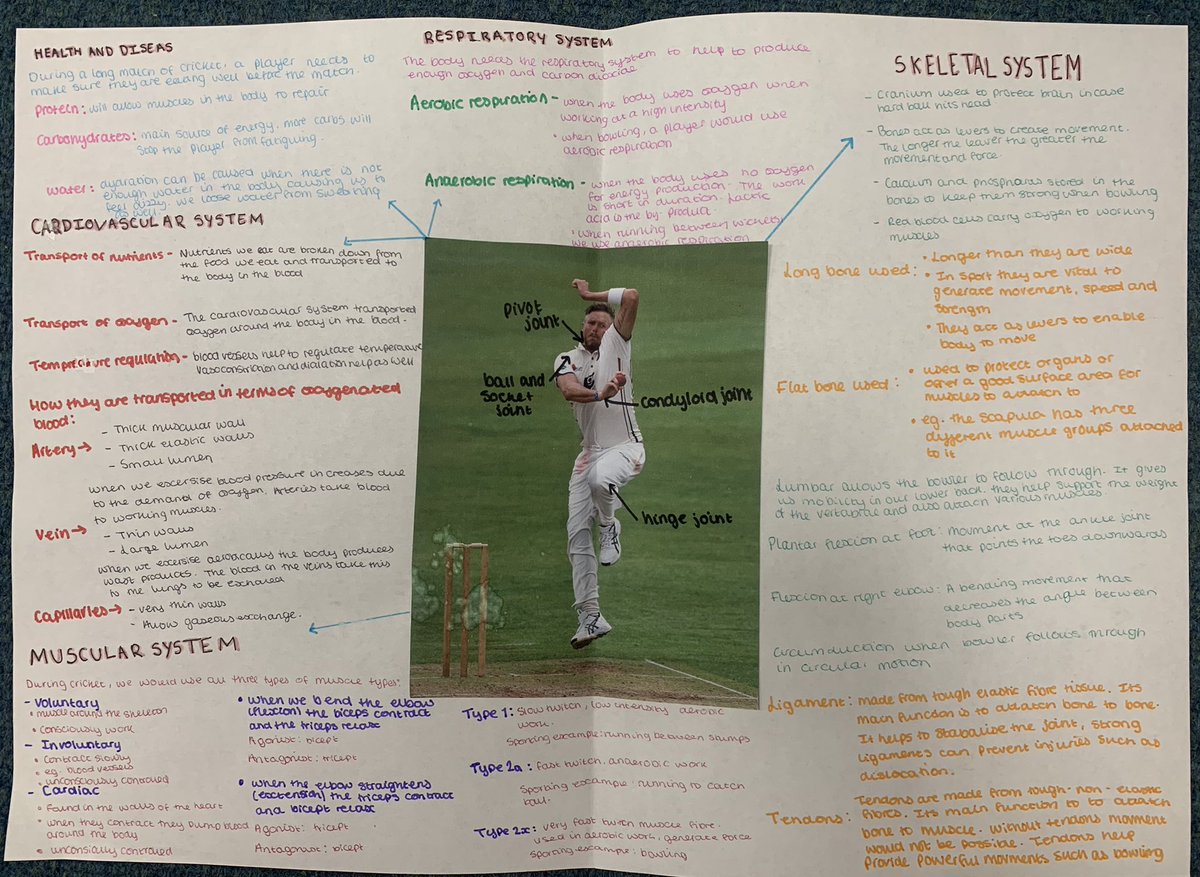 HEALTH AND DISEAS
During a long match of cricket, a player needs to
make sure they are eating well before the match.
Protein: will allow muscles in the body to repair
Carbohydrates: main source of energy. more carbs will
stop the player from fatiguing.
Water: dyaration can be caused when there is not
enough water in the body causing us to
feel dizzy. We loose water from sweating
as well.
CARDIOVASCULAR SYSTEM
Transport of nutrients - Nutrients we eat are broken down from
the food we eat and transported to
the body in the blood
Transport of oxygen - The cardiovascular system transported
oxygen around the body in the blood.
Tempreture regulation - blood vessels help to regulate temperature
Vasoconstriction and dialation help as well
How they are transported in terms of oxygenated
blood:
Artery → - Thick muscular wall
- Thick elastic walls
- Small lumen
When we excersise blood pressure in creases due
to the demand of oxygen. Arteries take blood
to working muscles.
Vein → - Thin walls
- Large lumen
when we excersise aerobically the body produces
wast products. The blood in the veins take this
to the lungs to be exchaned
Capillaries → - very thin walls
- Allow gaseous exchange.
MUSCULAR SYSTEM
During cricket, we would use all three types of muscle types:
- Voluntary
• muscle around the skeleton
• Consciously work
- Involuntary
• Contract slowly
• eg. blood vessels
• unconsciously controlled
- Cardiac
• Found in the walls of the heart
• when they contract they pump blood
around the body
• unconsially controlled
• When we bend the elbow
(flexion) the biceps contract
and the triceps relax
Agonist: bicept
Antagonist: tricept
• when the elbow straightens
(extension) the triceps contract
and bicept relax
Agonist: tricept
Antagonist: bicept
RESPIRATORY SYSTEM
The body needs the respiratory system to help to produce
enough oxygen and carbon dioxide
Aerobic respiration - when the body uses oxygen when
working at a high intensity
• when bowling, a player would use
aerobic respiration
Anaerobic respiration - when the body uses no oxygen
for energy production. The work
is short in duration. Lactic
acid is the by product
• When running between wickets
we use anaerobic respiration
pivot
joint
ball and
socket
joint
condyloid joint
hinge joint
Type 1: Slow twitch, low intensity aerobic
work.
Sporting example: running between stumps
Type 2a: fast twitch, anaerobic work
Sporting example: running to catch
ball.
Type 2x: very fast twitch muscle fibre.
used in aerobic work, generate force
sporting example: bowling
SKELETAL SYSTEM
- Cranium used to protect brain in case
hard ball hits head
- Bones act as levers to create movement.
The longer the leaver the greater the
movement and force.
- Calcium and phosphorus stored in the
bones to keep them strong when bowling
- Red blood cells carry oxygen to working
muscles
Long bone used: • Longer than they are wide
• In sport they are vital to
generate movement, speed and
strength
• They act as levers to enable
body to move
Flat bone used: • used to protect organs or
offer a good surface area for
muscles to attatch to
• eg. the scapula has three
different muscle groups attatched
to it
Lumbar allows the bowler to follow through. It gives
us mobility in our lower back. they help support the weight
of the vertabrae and also attach various muscles.
Plantar flexion at foot: movment at the ankle joint
that points the toes downwards
Flexion at right elbow: A bending movement that
decreases the angle between
body parts
Circumduction when bowler follows through
in circular motion
Ligament: made from tough elastic fibre tissue. Its
main function is to attatch bone to bone.
It helps to stabalise the joint, strong
ligaments can prevent injuries such as
dislocation.
Tendons: Tendons are made from tough non-elastic
fibres. Its main function to to attatch
bone to muscle. without tendons movment
would not be possible. Tendons help
provide powerful movments such as bowling